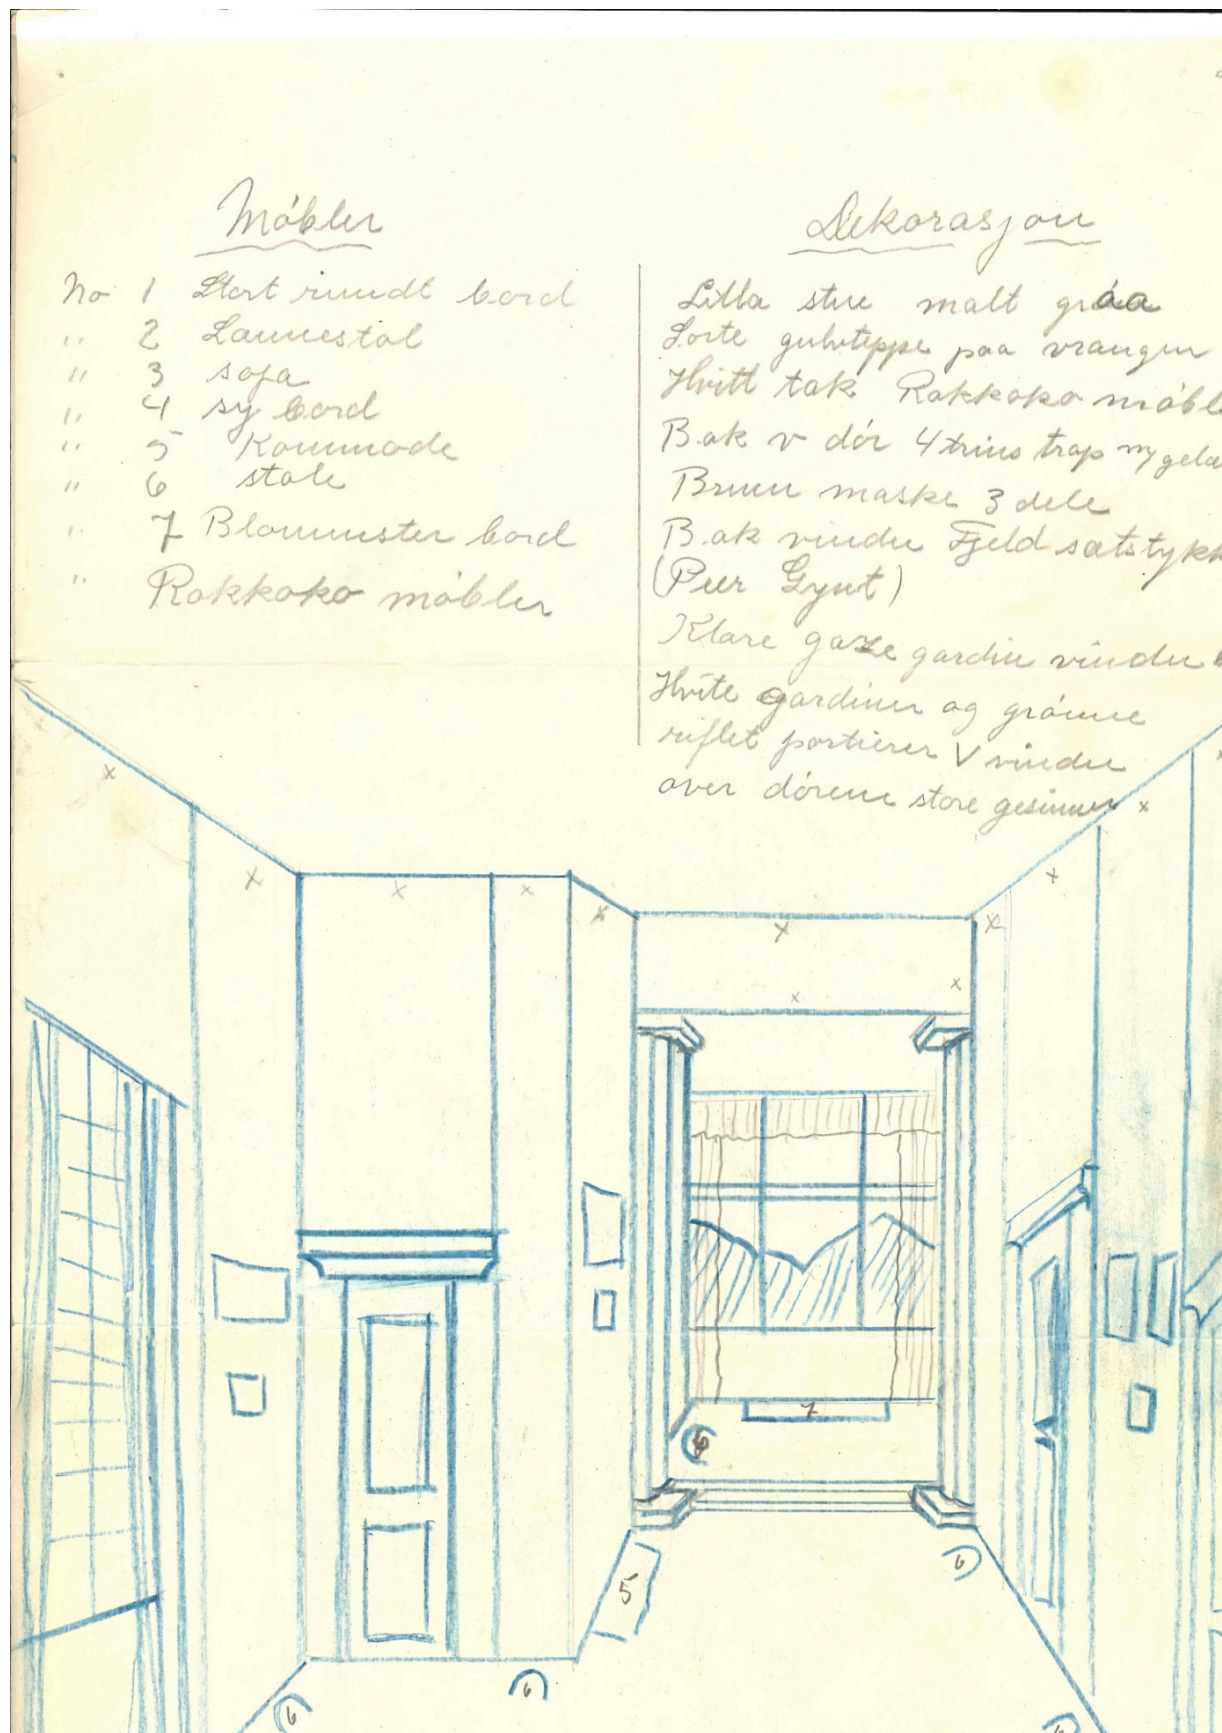 Möbler
No 1 Stort rundt bord
" 2 Lænnestol
" 3 sofa
" 4 sy bord
" 5 Kommode
" 6 stole
" 7 Blommster bord
" Rokkoko möbler
Dekorasjon
Lilla stue malt gråa
Sorte gulvteppe paa vrangen
Hvitt tak Rokkoko möble
Bak v dör 4 trins trap m/gelæ
Brun maske 3 dele
Bak vindu Fjeld satstykk
(Peer Gynt)
Klare gaze gardin vindu
Hvite gardiner og grönne
riflet portierer V vindu
over dörene store gesimser
7
6
5
6
6
6
6